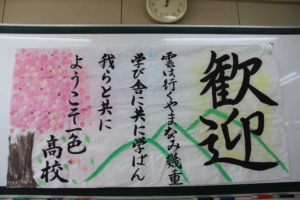 歓迎
雲は行くやまなみ幾重
学び舎に共に学ばん
我らと共に
ようこそ一色
高校